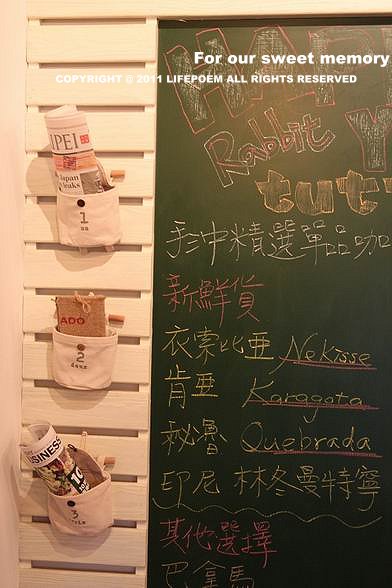 For our sweet memory
COPYRIGHT @ 2011 LIFEPOEM ALL RIGHTS RESERVED
HAP
Rabbit Y
tut
IPEI
Japan
leaks
1
ADO
2
BUSINESS
3
手中精選單品咖
新鮮貨
衣索比亞 Nekisse
肯亞 Karagota
秘魯 Quebrada
印尼 林冬曼特寧
其他選擇
巴拿馬